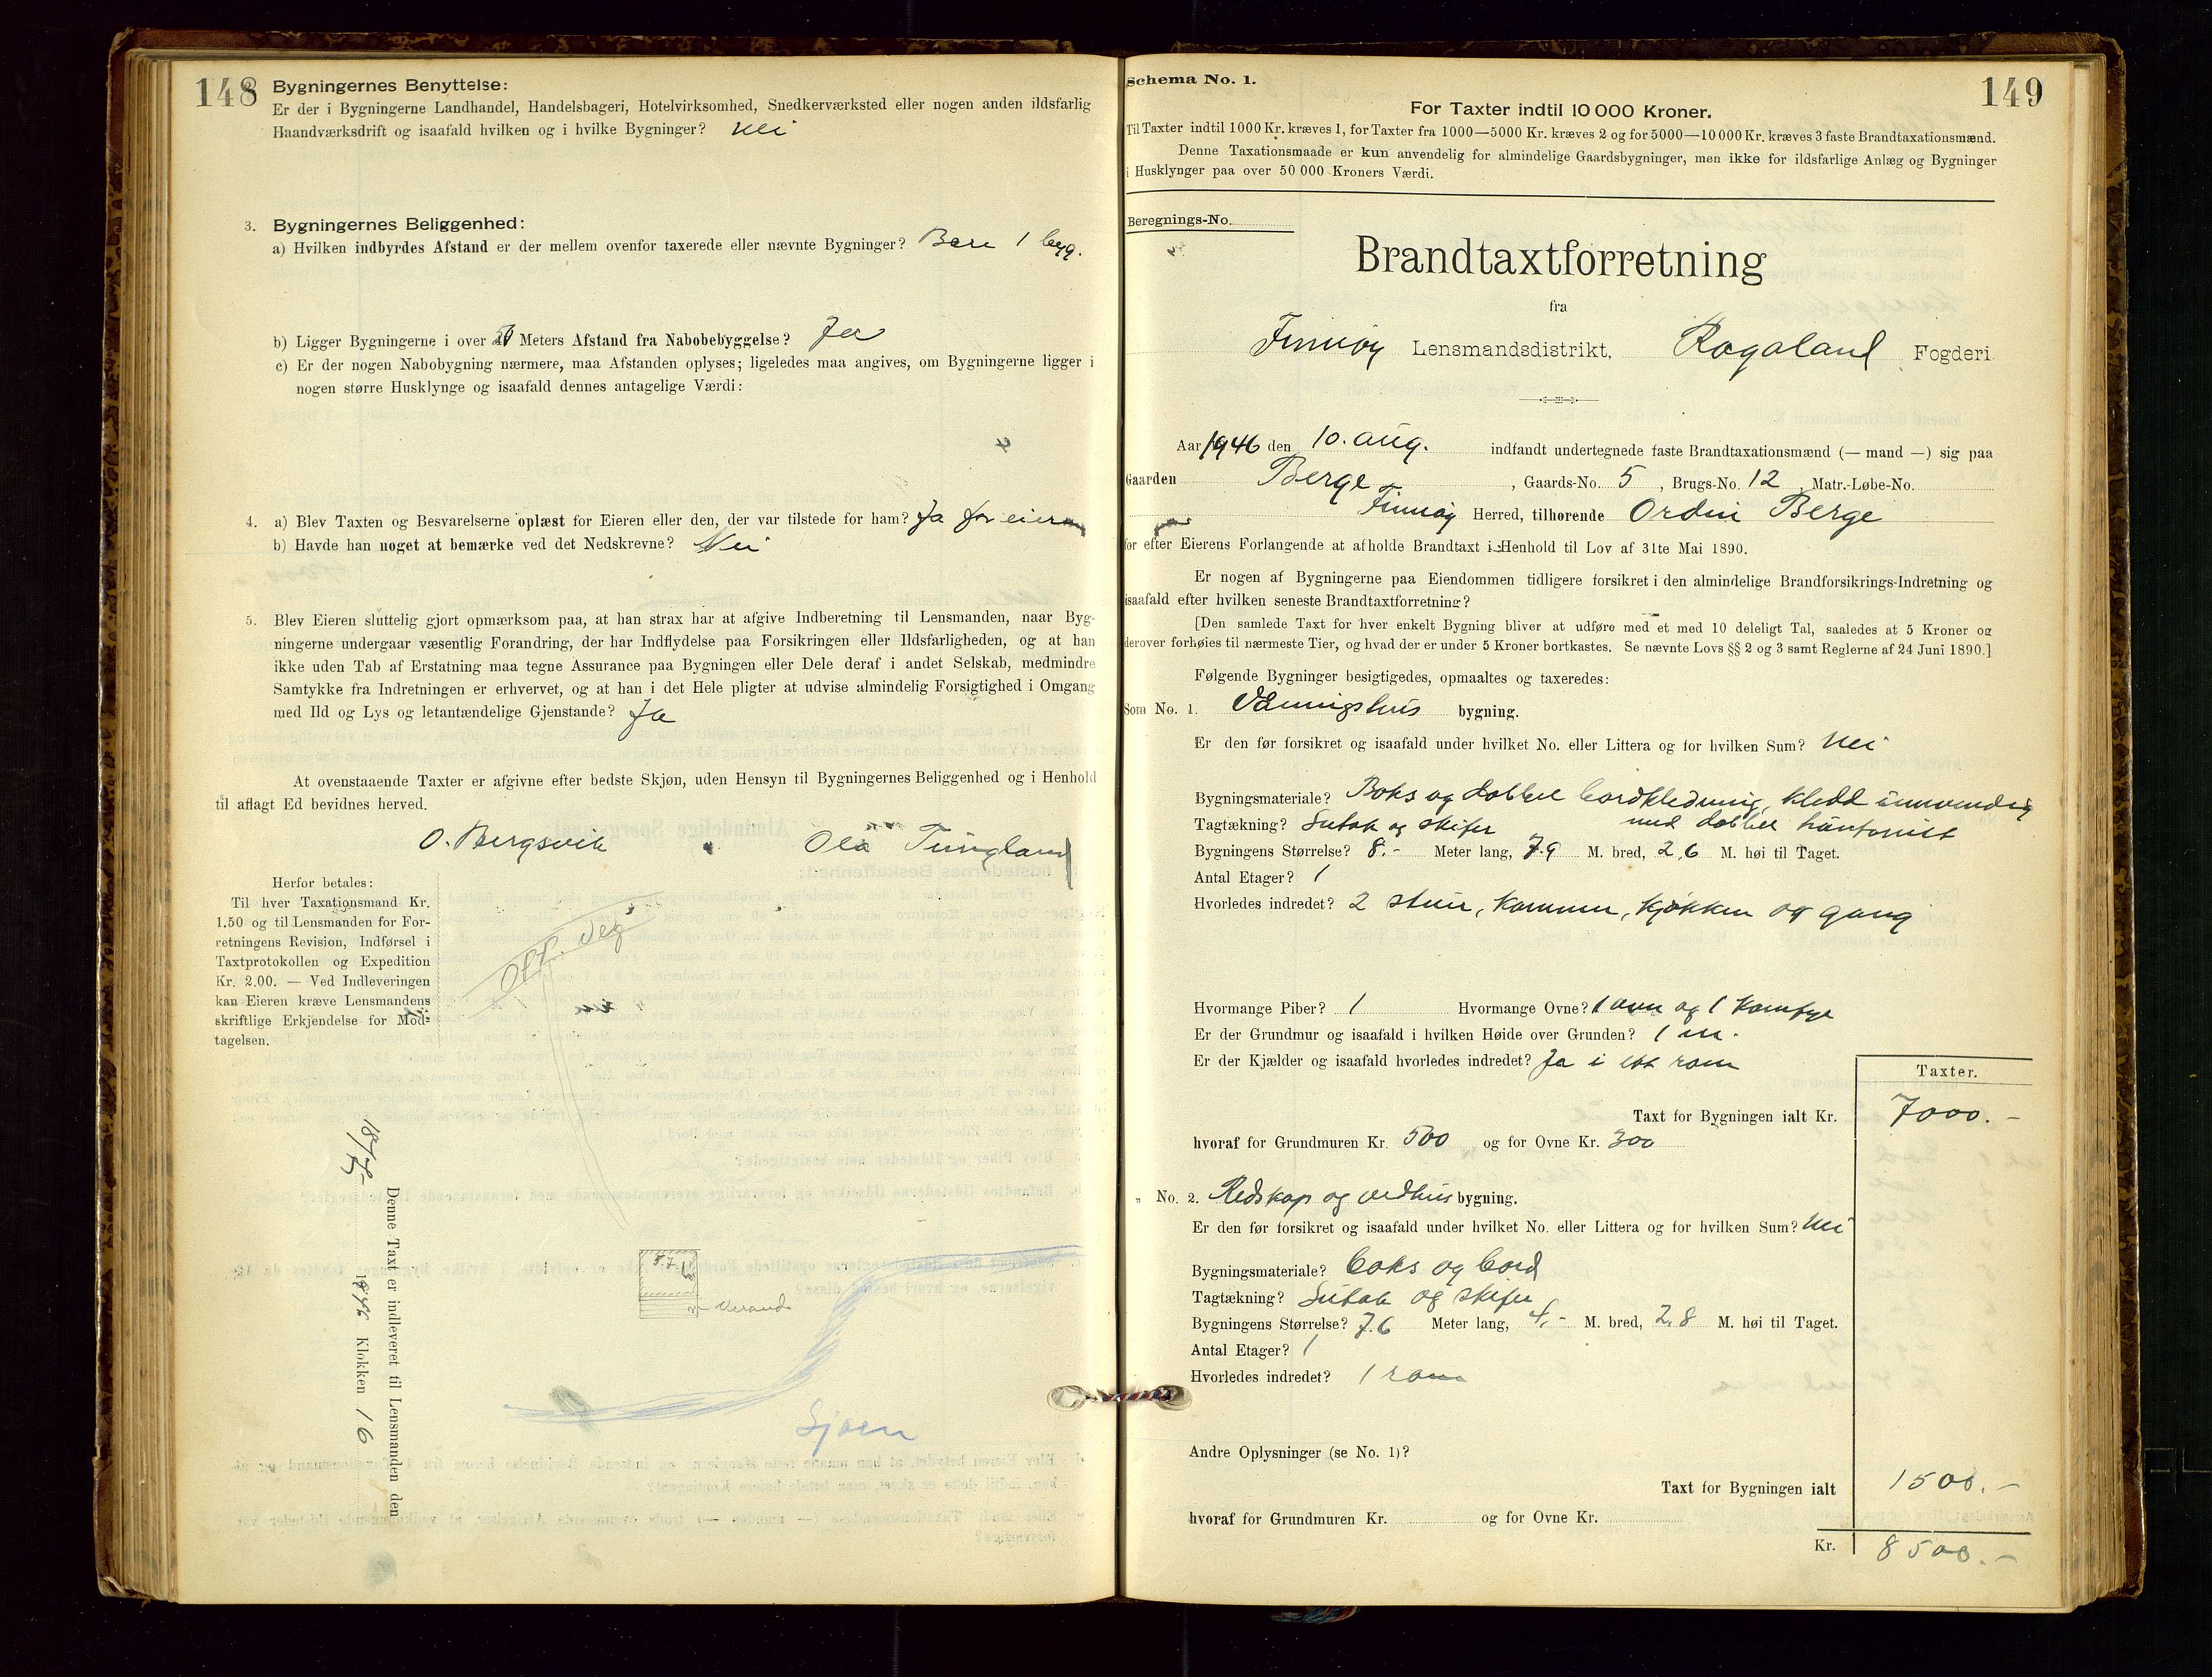 148
Bygningernes Benyttelse:
Er der i Bygningerne Landhandel, Handelsbageri, Hotelvirksomhed, Snedkerværksted eller nogen anden ildsfarlig
Haandværksdrift og isaafald hvilken og i hvilke Bygninger? Nei
3. Bygningernes Beliggenhed:
a) Hvilken indbyrdes Afstand er der mellem ovenfor taxerede eller nævnte Bygninger? Bare 1 bygg.
b) Ligger Bygningerne i over Meters Afstand fra Nabobebyggelse? Ja
c) Er der nogen Nabobygning nærmere, maa Afstanden oplyses; ligeledes maa angives, om Bygningerne ligger i
nogen større Husklynge og isaafald dennes antagelige Værdi:
4. a) Blev Taxten og Besvarelserne oplæst for Eieren eller den, der var tilstede for ham? Ja for eieren
b) Havde han noget at bemærke ved det Nedskrevne? Nei
5. Blev Eieren sluttelig gjort opmærksom paa, at han strax har at afgive Indberetning til Lensmanden, naar Byg-
ningerne undergaar væsentlig Forandring, der har Indflydelse paa Forsikringen eller Ildsfarligheden, og at han
ikke uden Tab af Erstatning maa tegne Assurance paa Bygningen eller Dele deraf i andet Selskab, medmindre
Samtykke fra Indretningen er erhvervet, og at han i det Hele pligter at udvise almindelig Forsigtighed i Omgang
med Ild og Lys og letantændelige Gjenstande? Ja
At ovenstaaende Taxter er afgivne efter bedste Skjøn, uden Hensyn til Bygningernes Beliggenhed og i Henhold
til aflagt Ed bevidnes herved.
O. Bergsvik Ola Tungland
Herfor betales:
Til hver Taxationsmand Kr.
1.50 og til Lensmanden for For-
retningens Revision, Indførsel i
Taxtprotokollen og Expedition
Kr. 2.00. — Ved Indleveringen
kan Eieren kræve Lensmandens
skriftlige Erkjendelse for Mod-
tagelsen.
Off. veg
Veranda
Sjøen
Denne Taxt er indleveret til Lensmanden den
1946 Klokken 16
149
Schema No. 1.
For Taxter indtil 10 000 Kroner.
Til Taxter indtil 1000 Kr. kræves 1, for Taxter fra 1000—5000 Kr. kræves 2 og for 5000—10 000 Kr. kræves 3 faste Brandtaxationsmænd.
Denne Taxationsmaade er kun anvendelig for almindelige Gaardsbygninger, men ikke for ildsfarlige Anlæg og Bygninger
i Husklynger paa over 50 000 Kroners Værdi.
Beregnings-No.
Brandtaxtforretning
fra
Finnøy Lensmandsdistrikt, Rogaland Fogderi
Aar 1946 den 10. aug. indfandt undertegnede faste Brandtaxationsmænd (— mand —) sig paa
Gaarden Berge, Gaards-No. 5, Brugs-No. 12, Matr.-Løbe-No.
Finnøy Herred, tilhørende Ordin Berge
for efter Eierens Forlangende at afholde Brandtaxt i Henhold til Lov af 31te Mai 1890.
Er nogen af Bygningerne paa Eiendommen tidligere forsikret i den almindelige Brandforsikrings-Indretning og
isaafald efter hvilken seneste Brandtaxtforretning?
[Den samlede Taxt for hver enkelt Bygning bliver at udføre med et med 10 deleligt Tal, saaledes at 5 Kroner og
derover forhøies til nærmeste Tier, og hvad der er under 5 Kroner bortkastes. Se nævnte Lovs §§ 2 og 3 samt Reglerne af 24 Juni 1890.]
Følgende Bygninger besigtigedes, opmaaltes og taxeredes:
Som No. 1. Våningshus bygning.
Er den før forsikret og isaafald under hvilket No. eller Littera og for hvilken Sum? Nei
Bygningsmateriale? Boks og dobbel bordkledning, kledd innvendig
med dobbel
Tagtækning? Sutak og skifer
Bygningens Størrelse? 8.- Meter lang, 7.9 M. bred, 2,6 M. høi til Taget.
Antal Etager? 1
Hvorledes indredet? 2 stuer, kammer, kjøkken og gang
Hvormange Piber? 1 Hvormange Ovne? 1 ovn og 1 komfyr
Er der Grundmur og isaafald i hvilken Høide over Grunden? 1 m.
Er der Kjælder og isaafald hvorledes indredet? Ja i ett rom
Taxter.
Taxt for Bygningen ialt Kr. 7000.-
hvoraf for Grundmuren Kr. 500 og for Ovne Kr. 300
" No. 2. Redskap og vedhus bygning.
Er den før forsikret og isaafald under hvilket No. eller Littera og for hvilken Sum? Nei
Bygningsmateriale? boks og bord
Tagtækning? Sutak og skifer
Bygningens Størrelse? 7.6 Meter lang, 4,- M. bred, 2,8 M. høi til Taget.
Antal Etager? 1
Hvorledes indredet? 1 rom
Andre Oplysninger (se No. 1)?
Taxt for Bygningen ialt 1500.-
hvoraf for Grundmuren Kr. og for Ovne Kr.
Kr. 8500.-